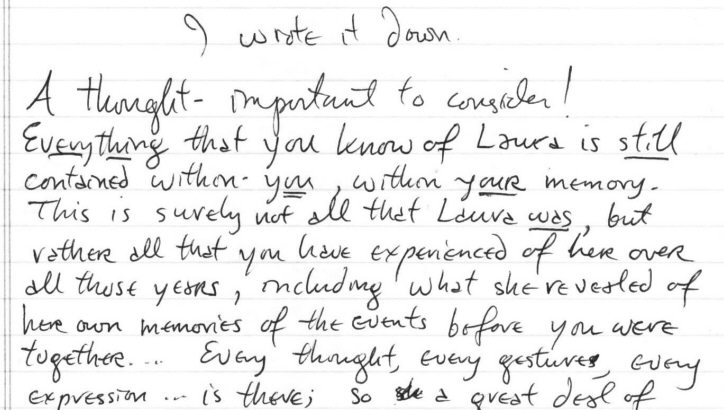 I wrote it down.
A thought - important to consider!
Everything that you know of Laura is still
contained within - you, within your memory.
This is surely not all that Laura was, but
rather all that you have experienced of her over
all those years, including what she revealed of
her own memories of the events before you were
together.... Every thought, every gesture, every
expression ... is there; so a great deal of